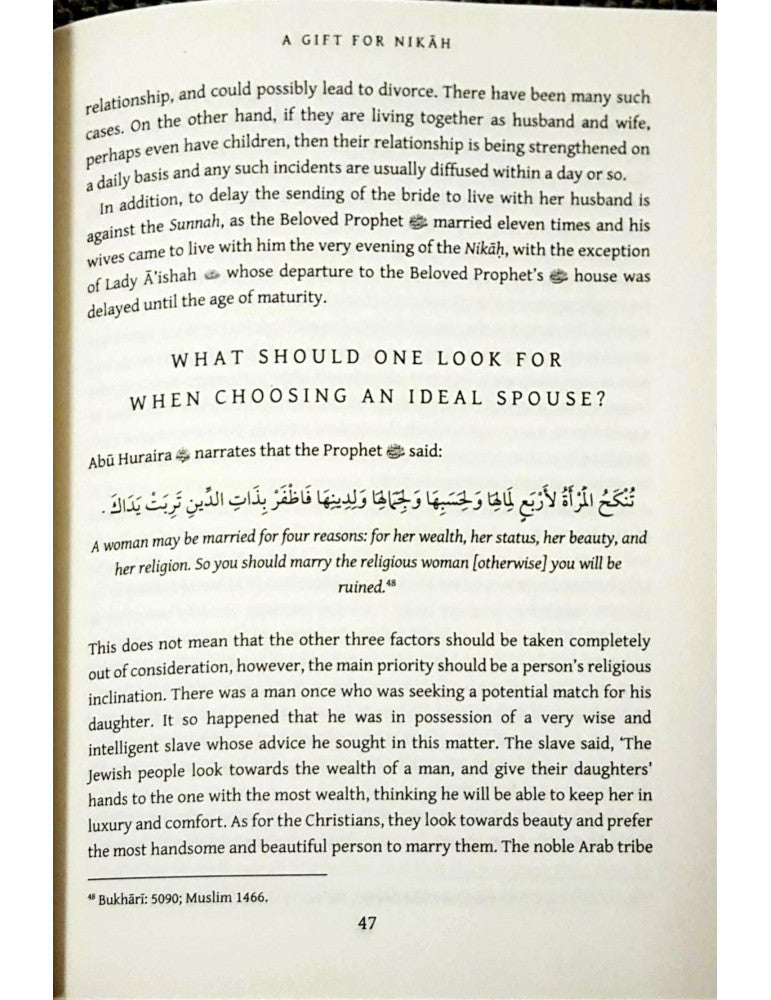 A GIFT FOR NIKĀH
relationship, and could possibly lead to divorce. There have been many such
cases. On the other hand, if they are living together as husband and wife,
perhaps even have children, then their relationship is being strengthened on
a daily basis and any such incidents are usually diffused within a day or so.
In addition, to delay the sending of the bride to live with her husband is
against the Sunnah, as the Beloved Prophet ﷺ married eleven times and his
wives came to live with him the very evening of the Nikāḥ, with the exception
of Lady Ā'ishah whose departure to the Beloved Prophet's ﷺ house was
delayed until the age of maturity.
WHAT SHOULD ONE LOOK FOR
WHEN CHOOSING AN IDEAL SPOUSE?
Abū Huraira narrates that the Prophet ﷺ said:
تُنْكَحُ الْمَرْأَةُ لأَرْبَعٍ لِمَالِهَا وَلِحَسَبِهَا وَلِجَمَالِهَا وَلِدِينِهَا فَاظْفَرْ بِذَاتِ الدِّينِ تَرِبَتْ يَدَاكَ .
A woman may be married for four reasons: for her wealth, her status, her beauty, and
her religion. So you should marry the religious woman [otherwise] you will be
ruined.⁴⁸
This does not mean that the other three factors should be taken completely
out of consideration, however, the main priority should be a person's religious
inclination. There was a man once who was seeking a potential match for his
daughter. It so happened that he was in possession of a very wise and
intelligent slave whose advice he sought in this matter. The slave said, 'The
Jewish people look towards the wealth of a man, and give their daughters'
hands to the one with the most wealth, thinking he will be able to keep her in
luxury and comfort. As for the Christians, they look towards beauty and prefer
the most handsome and beautiful person to marry them. The noble Arab tribe
⁴⁸ Bukhārī: 5090; Muslim 1466.
47